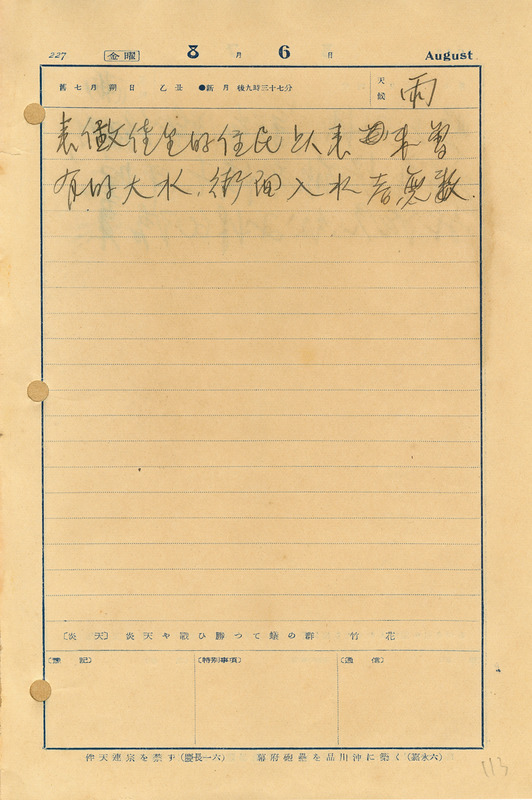 227 金曜 8月6日 August
舊七月朔日 乙丑 ●新月 後九時三十七分 天候 雨
來做佳里的住民以來未曾
有的大水,街面入水者無数.
〔炎天〕 炎天や戰ひ勝つて蟻の群 竹花
〔豫記〕 〔特別事項〕 〔通信〕
伴天連宗を禁ず(慶長一六) 幕府砲壘を品川沖に築く(嘉永六)
113